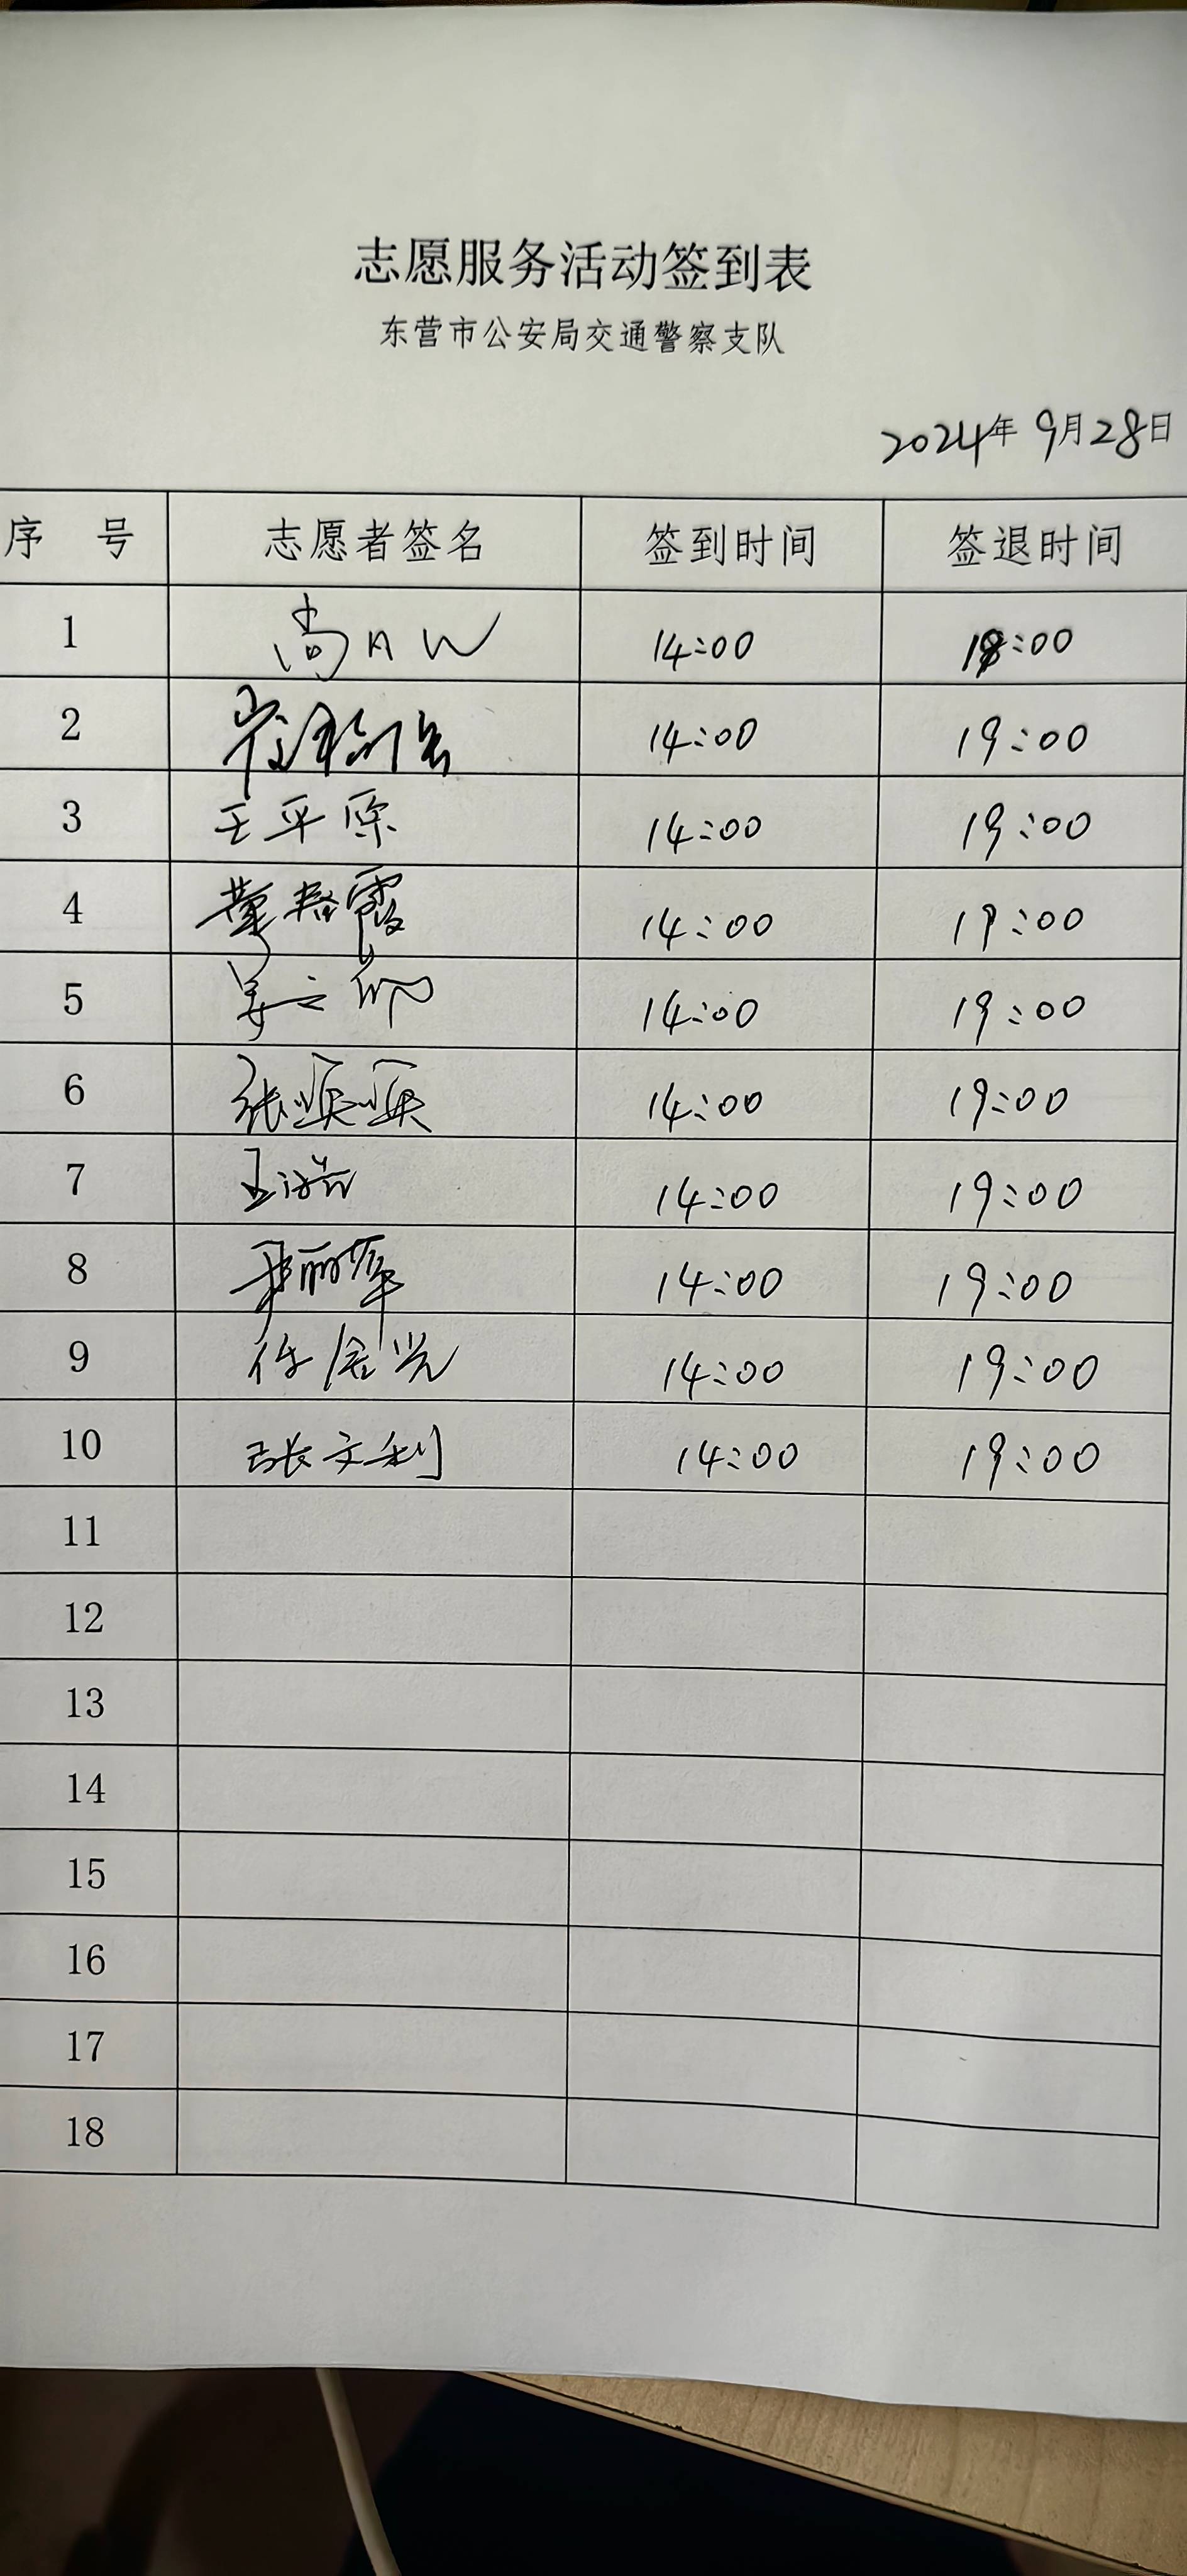 志愿服务活动签到表
东营市公安局交通警察支队
2024年 9月28日
序 号 志愿者签名 签到时间 签退时间
1 尚 14:00 :00
2 14:00 19:00
3 王平原 14:00 19:00
4 董 霞 14:00 19:00
5 姜 14:00 19:00
6 张 14:00 19:00
7 王 14:00 19:00
8 丽 14:00 19:00
9 任 14:00 19:00
10 张文利 14:00 19:00
11
12
13
14
15
16
17
18